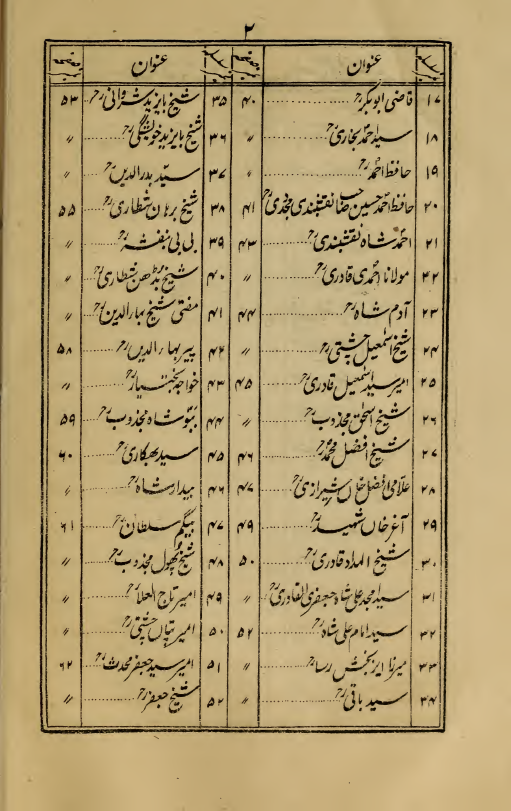 ۲
نمبر سلسلہ عنوان نمبر صفحہ نمبر سلسلہ عنوان نمبر صفحہ
۱۷ قاضی ابوبکرؒ ۴۰ ۳۵ شیخ بایزید شروانیؒ ۵۳
۱۸ سید احمد بخاریؒ 〃 ۳۶ شیخ بایزید خویشگیؒ 〃
۱۹ حافظ احمدؒ 〃 ۳۷ سید بدرالدینؒ 〃
۲۰ حافظ احمد حسین صاحب نقشبندی مجددیؒ ۴۱ ۳۸ شیخ برہان شطاریؒ ۵۵
۲۱ احمد شاہ نقشبندیؒ ۴۳ ۳۹ بی بی بنفشہؒ 〃
۲۲ مولانا احمدی قادریؒ 〃 ۴۰ شیخ بڈھن شطاریؒ 〃
۲۳ آدم شاہؒ ۴۴ ۴۱ مفتی شیخ بہارالدینؒ 〃
۲۴ شیخ اسمعیل چشتیؒ 〃 ۴۲ پیر بہارالدینؒ ۵۸
۲۵ امیر سید اسمعیل قادریؒ ۴۵ ۴۳ خواجہ بختیارؒ 〃
۲۶ شیخ اسحٰق مجذوبؒ 〃 ۴۴ ببّو شاہ مجذوبؒ ۵۹
۲۷ شیخ افضل محمدؒ ۴۶ ۴۵ سید بھکاریؒ ۶۰
۲۸ علامی افضل خاں شیرازیؒ ۴۷ ۴۶ بیدار شاہؒ 〃
۲۹ آغر خاں شہیدؒ ۴۹ ۴۷ بیگم سلطانؒ ۶۱
۳۰ شیخ الہداد قادریؒ ۵۰ ۴۸ شیخ پھول مجذوبؒ 〃
۳۱ سید امجد علی شاہ جعفری القادریؒ 〃 ۴۹ امیر تاج العلاؒ 〃
۳۲ سید امام علی شاہؒ ۵۲ ۵۰ امیر چشتیؒ 〃
۳۳ میرزا ایزد بخش رساؒ 〃 ۵۱ امیر سید جعفر محدثؒ ۶۲
۳۴ سید باقیؒ 〃 ۵۲ شیخ جعفرؒ 〃